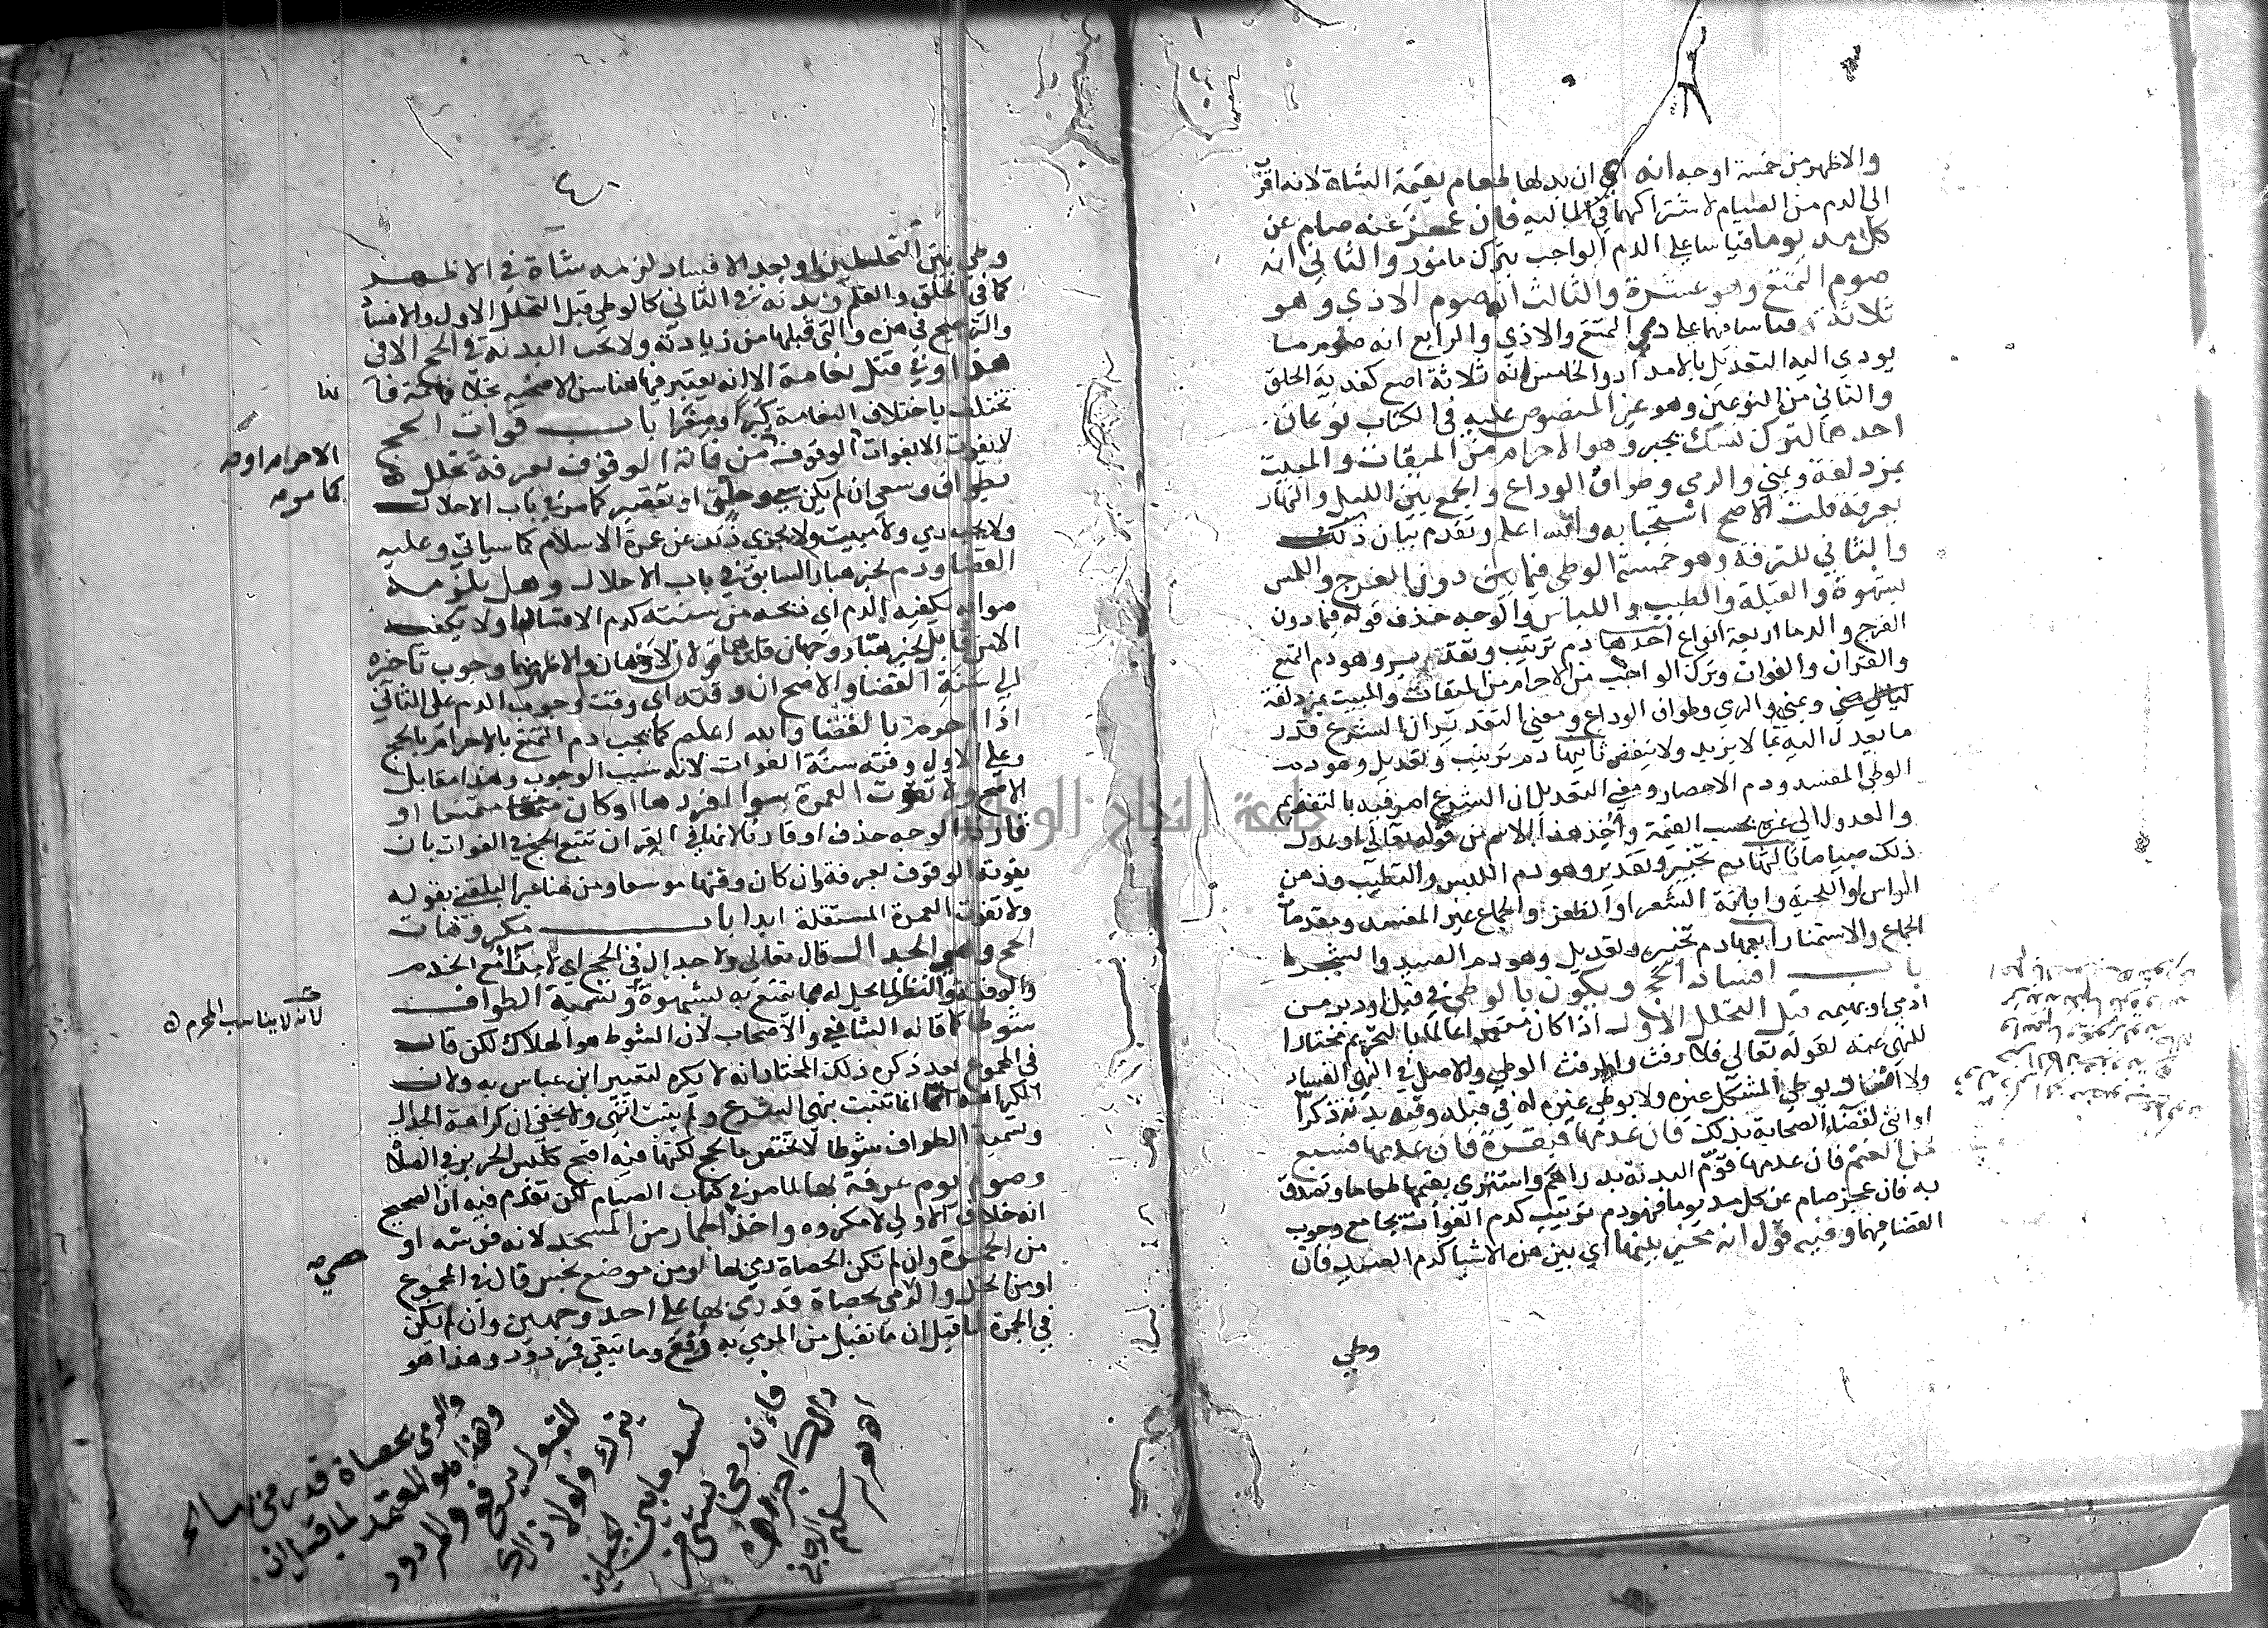 والاظهر من خمسة اوجه انه اي ان بدلها طعام بقيمة الشاة لانه اقرب
الى الدم من الصيام لاشتراكهما في الماليه فان عجز عنه صام عن
كل مد يوما قياسا على الدم الواجب بترك مامور والثاني انه
صوم التمتع وهو عشرة والثالث انه صوم الاذي وهو
ثلاثة قياسا فيهما على دمي التمتع والاذي والرابع انه صوم ما
يودي اليه التعديل بالامداد والخامس انه ثلاثة اصع كفدية الحلق
والثاني من النوعين وهو غير المنصوص عليه في الكتاب نوعان
احدهما لترك نسك يجبر وهو الاحرام من الميقات والمبيت
بمزدلفة وبمني والرمي وطواف الوداع والجمع بين الليل والنهار
بعرفة قلت الاصح استحبابه والله اعلم وتقدم بيان ذلك
والثاني للترفه وهو خمسة الوطي فيما دون الفرج واللمس
بشهوة والقبلة والطيب واللباس والوجه حذف قوله فيما دون
الفرج والدما اربعة انواع احدها دم ترتيب وتقدير وهو دم التمتع
والقران والفوات وترك الواجب من الاحرام من الميقات والمبيت بمزدلفة
وبمني والرمي وطواف الوداع ومعني التقدير ان الشرع قدر
ما يعدل اليه بما لا يزيد ولا ينقص ثانيها دم ترتيب وتعديل وهو دم
الوطي المفسد ودم الاحصار ومعني التعديل ان الشرع امر فيه بالتقويم
والعدول الى غيره بحسب القيمة واخذ هذا الاسم من قوله تعالى او عدل
ذلك صياما ثالثها دم تخيير وتقدير وهو دم اللبس والتطيب ودهن
الراس او اللحية وابانة الشعر او الظفر والجماع غير المفسد ومقدمات
الجماع والاستمنا رابعها دم تخيير وتعديل وهو دم الصيد والشجر
باب افساد الحج ويكون بالوطي في قبل او دبر من
ادمي او بهيمه قبل التحلل الاول اذا كان متعمدا عالما بالتحريم مختارا
للنهي عنه لقوله تعالى فلا رفث والرفث الوطي والاصل في النهي الفساد
ولا افساد بوطي المشكل غيره ولا بوطي غيره له في قبله وفيه بدنة ذكرا
او انثي لقضاء الصحابة بذلك فان عدمها فبقرة فان عدمها فسبع
من الغنم فان عدمها قوم البدنة بدراهم واشتري بقيمتها طعاما وتصدق
به فان عجز صام عن كل مد يوما فهو دم ترتيب كدم الفوات بجامع وجوب
القضا فيهما وفيه قول انه مخير بينها اي بين هذه الاشيا كدم الصيد فان
وطي
٤٠
وطي بين التحللين او بعد الافساد لزمه شاة في الاظهر
كما في الحلق والقلم وبدنة في الثاني كالوطي قبل التحلل الاول والافساد
والترجيح في هذه والتي قبلها من زيادته ولا تجب البدنة في الحج الا في
هذا وفي قتل نعامة الا انه يعتبر فيها هنا سن الاضحية بخلافها ثمة فا
نها
تختلف باختلاف النعامة كبرا وصغرا باب فوات الحج
لا يفوت الا بفوات الوقوف فمن فاته الوقوف بعرفة تحلل
بطواف وسعي ان لم يكن سعي وحلق او تقصير كما مر في باب الاحلال
الاحرام او
كما مر
ولا يجب رمي ولا مبيت ولا يجزي ذلك عن عمرة الاسلام كما سياتي وعليه
القضا ودم لخبر هبار السابق في باب الاحلال وهل يلزمه
صوابه يكفيه الدم اي ذبحه من سنته كدم الافساد او لا يكفيه
الا من قابل لخبر هبار وجهان قلت هما قولان لا وجهان والاظهر منهما وجوب تاخره
الي سنة القضا والاصح ان وقته اي وقت وجوب الدم على الثاني
اذا احرم بالقضا والله اعلم كما يجب دم التمتع بالاحرام بالحج
وعلى الاول وقته سنة الفوات لانه سبب الوجوب وهذا مقابل
الاصح ولا تفوت العمرة سوا افردها او كان متمتعا او
قارنا والوجه حذف او قارنا لانها في القران تتبع الحج في الفوات بان
يفوته الوقوف بعرفة وان كان وقتها موسعا ومن هنا عبر البلقيني بقوله
ولا تفوت العمرة المستقلة ابدا باب مكروهات
الحج وهي الجدال قال تعالى ولا جدال في الحج اي لا جدال مع الخدم
والرفقة والنظر لما يحل له مما يتمتع به بشهوة وتسمية الطواف
شوطا كما قاله الشافعي والاصحاب لان الشوط هو الهلاك لكن قال
لانه لا يناسب المحرم
في المجموع بعد ذكره ذلك المختار انه لا يكره لتعبير ابن عباس به ولان
الكراهة انما تثبت بنهي الشرع ولم يثبت انتهي ولا يخفي ان كراهة الجدال
وتسمية الطواف شوطا لا تختص بالحج لكنها فيه اقبح كلبس الحرير في الصلاة
وصوم يوم عرفة بها لما مر في كتاب الصيام لكن تقدم فيه ان الصحيح
انه خلاف الاولي لا مكروه واخذ الجمار من المسجد لانه فرشه او
من الجمرة وان لم تكن الحصاة رمي بها او من موضع نجس قال في المجموع
او من الحل والرمي بحصاة قد رمي بها على احد وجهين وان لم تكن
في الجمرة لما قيل ان ما تقبل من المرمي به رفع وما بقي فمردود وهذا هو
والرمي بحصاة قد رمي بها الخ
وهذا هو المعتمد لما قيل ان
المقبول يرفع والمردود
يترك ولولا ذلك
لسد ما بين الجبلين
جامعة النجاح الوطنية